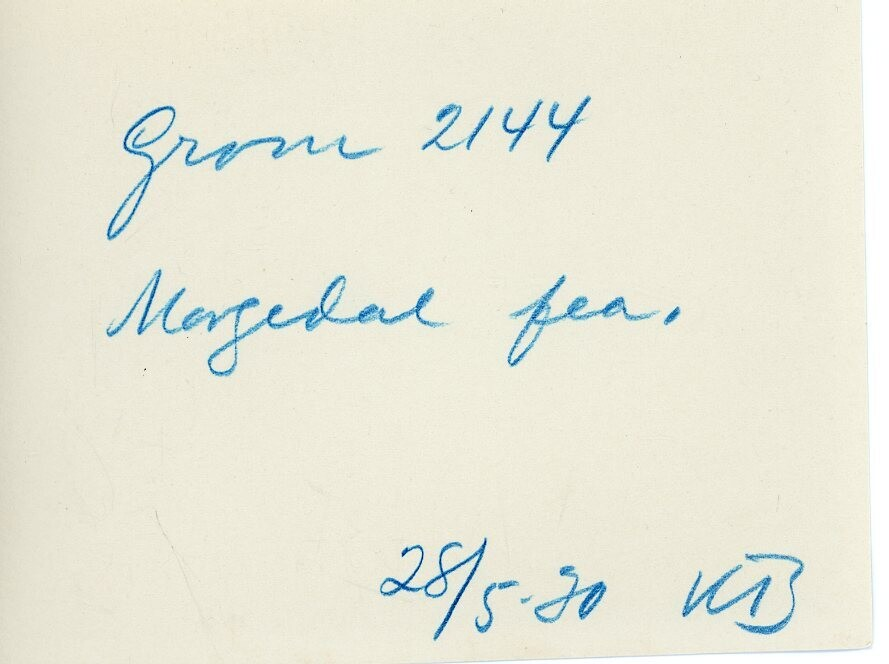 Grom 2144
Morgedal fea.
28/5-30 KB